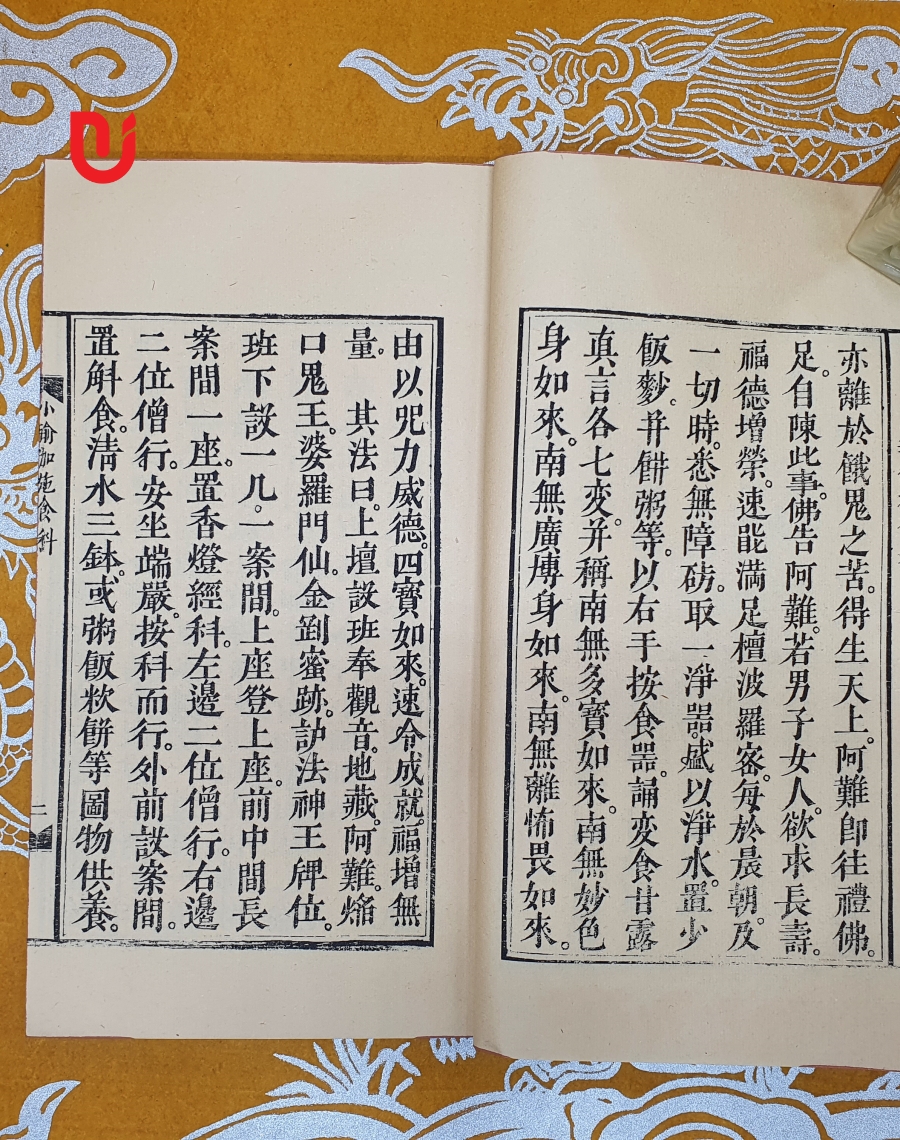 亦離於餓鬼之苦。得生天上。阿難卽往禮佛。
足。自陳此事。佛告阿難。若男子女人。欲求長壽。
福德增榮。速能滿足檀波羅密。每於晨朝。及
一切時。悉無障碍。取一淨器。盛以淨水。置少
飯麨。并餠粥等。以右手按食器。誦变食甘露
真言各七变。并稱南無多寶如來。南無妙色
身如來。南無廣博身如來。南無離怖畏如來。
由以咒力威德。四寶如來。速令成就。福增無
量。 其法曰。上壇設班奉觀音。地藏。阿難。燄
口鬼王。婆羅門仙。金剛蜜跡。訣法神王牌位。
班下設一几。一案間。上座登上座。前中間長
案間一座。置香燈經科。左邊二位僧行。右邊
二位僧行。安坐端嚴。按科而行。外前設案間。
置斛食。淸水三鉢。或粥飯炊餠等圖物供養。
小瑜伽施食科
二